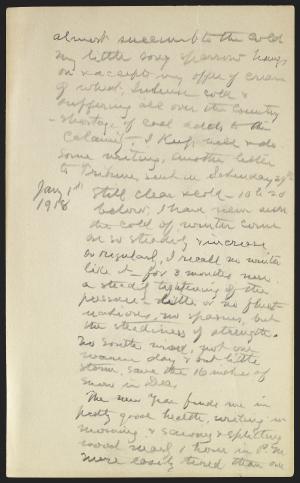 almost succumb to the cold
my little song sparrow hangs
on & accepts my offer of cream
of wheat. Intense cold &
suffering all over the country
- shortage of coal adds to the
calamity. I keep well & do
some writing. Another letter
to Tribune sent in Saturday 29th
Jany 1st Still clear & cold - 10 to 20
1918 below. I have never seen
the cold of winter come
on so steadily & increase
so regularly, I recall no winter
like it - for 3 months now
a steady tightening of the
pressure - little or no fluct-
uations, no spasms, but
the steadiness of strength.
No south wind, not one
warm day & but little
storm, save the 16 inches of
snow in Dec.
The new Year finds me in
pretty good health, writing in
morning & sawing & splitting
wood nearly 1 hour in P.M.
more easily tired than one